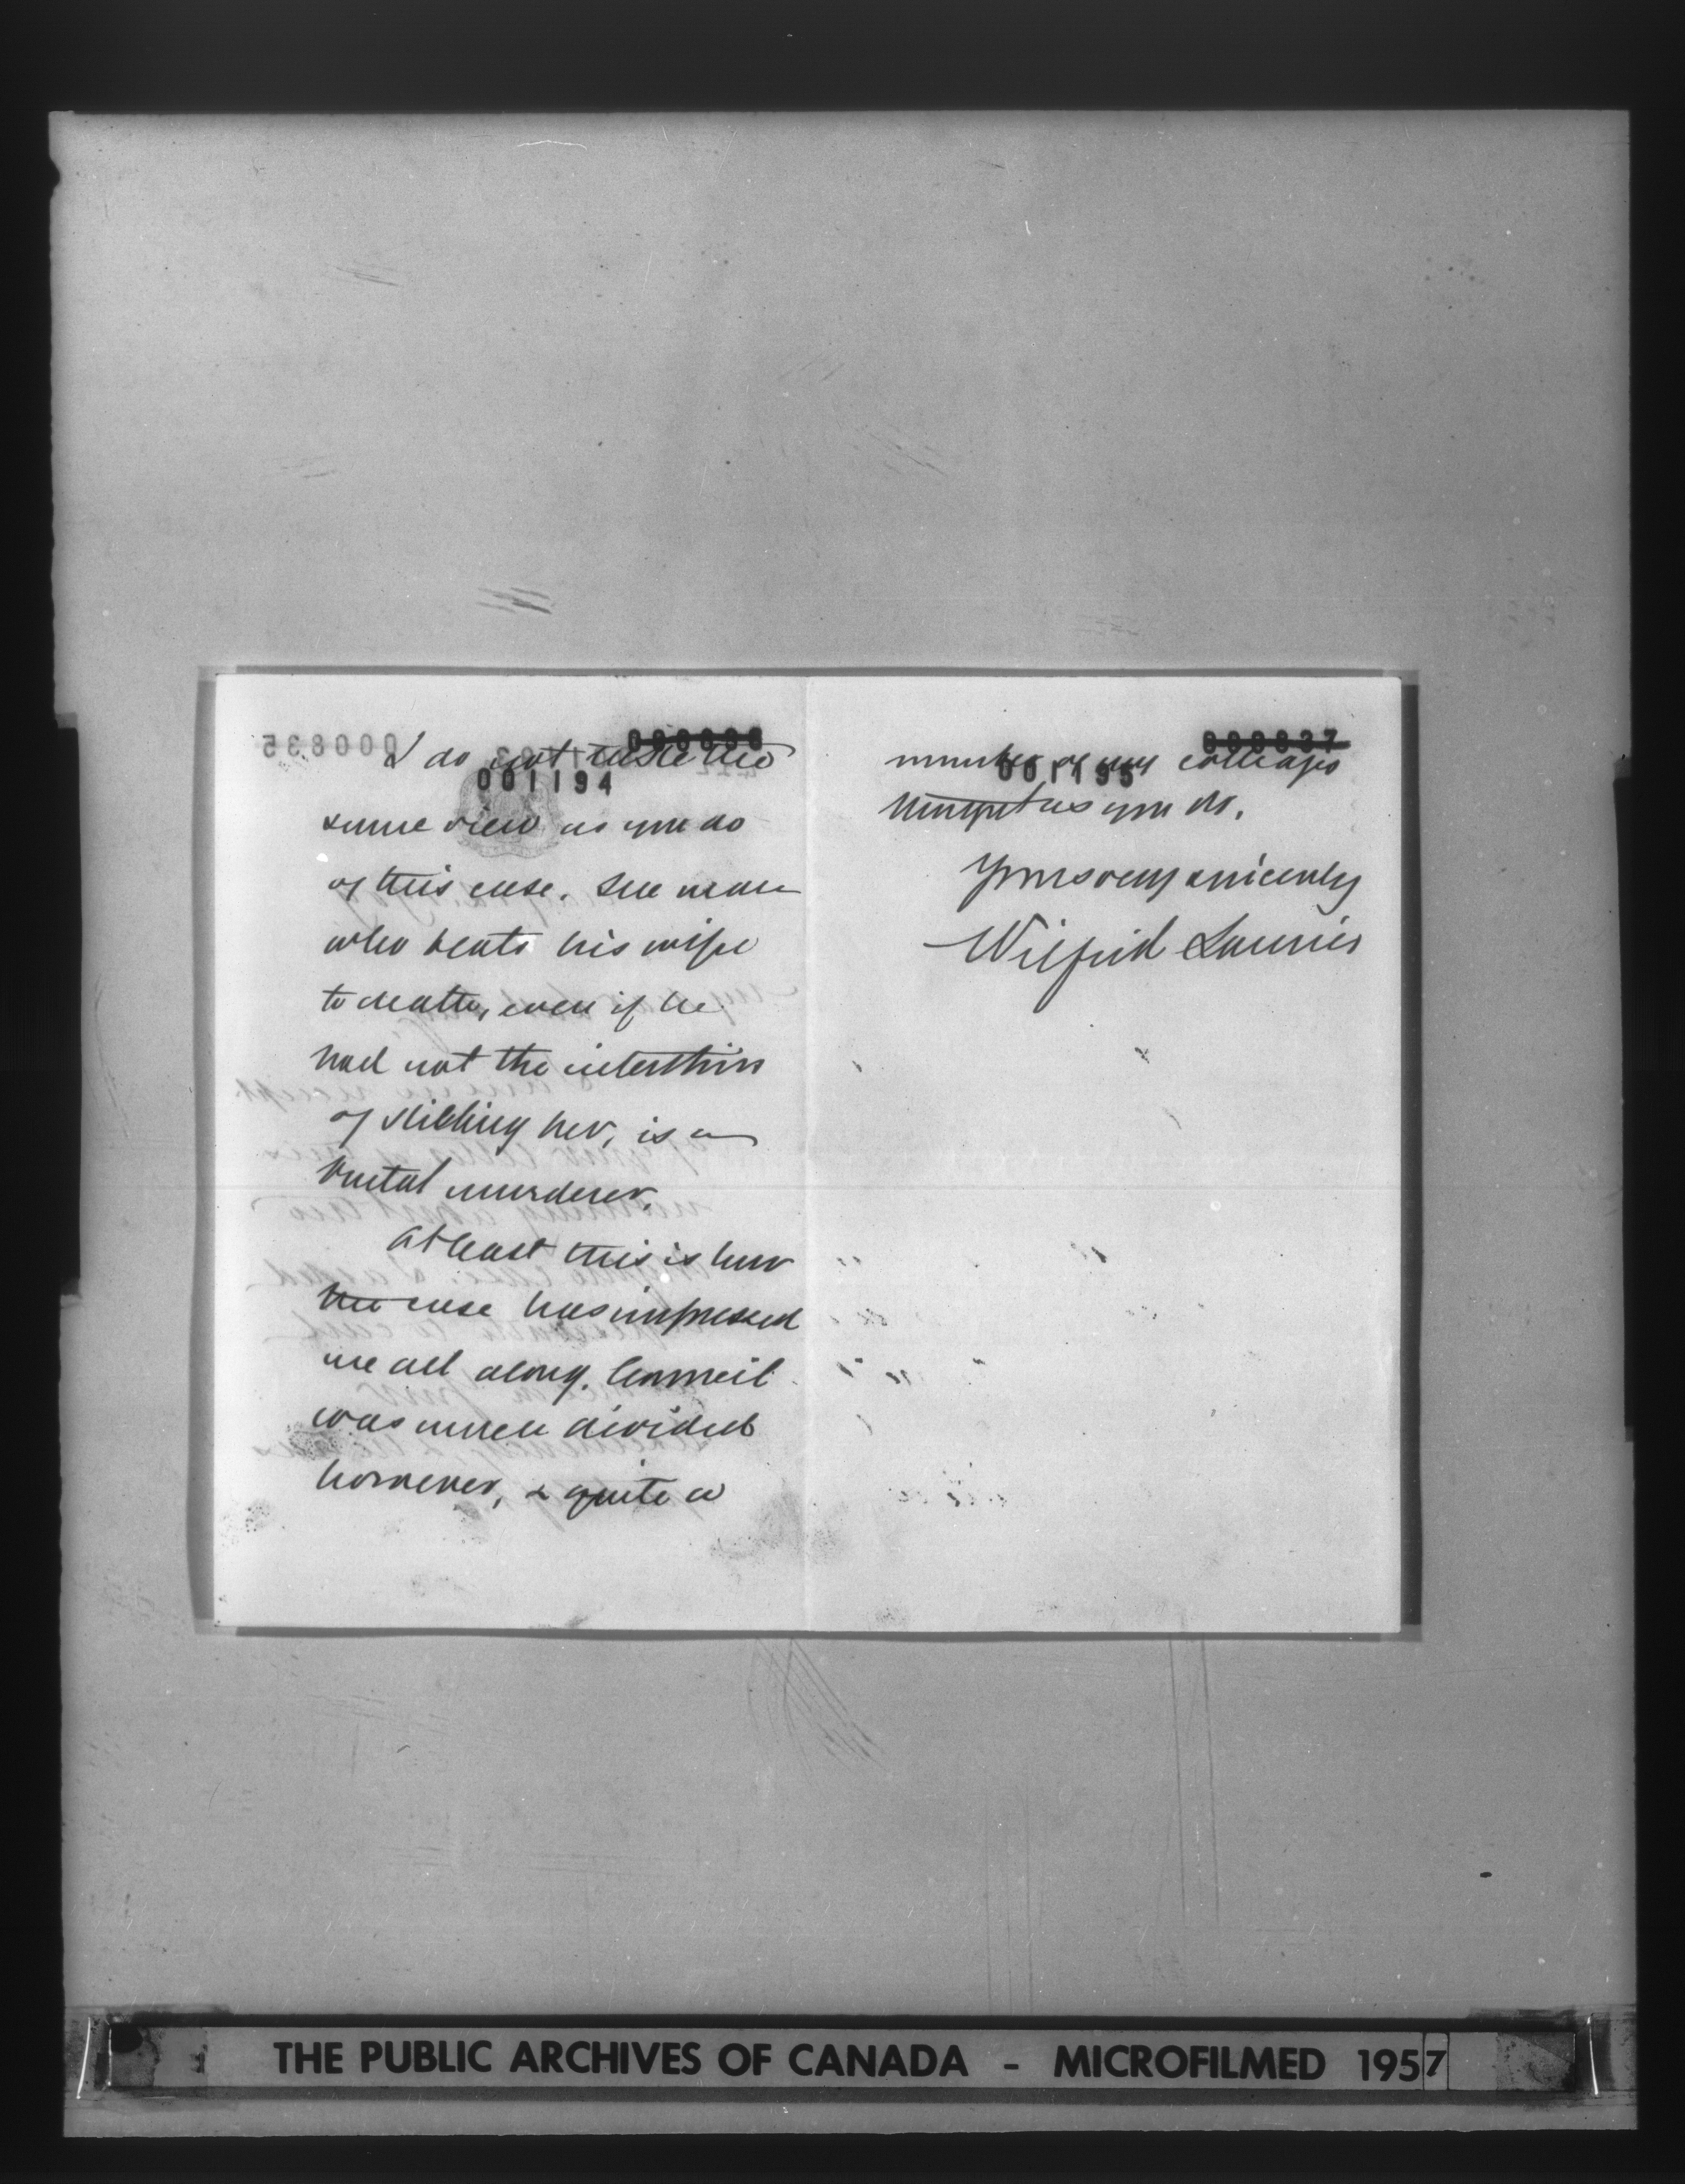 000835
000836
I do not take the
001194
same view as you do
of this case. The man
who beats his wife
to death, even if he
had not the intention
of killing her, is a
brutal murderer.
At least this is how
the case has impressed
me all along. Council
was much divided
however, & quite a
000837
number of my colleagues
001195
thought as you do.
Yours very sincerely
Wilfrid Laurier
THE PUBLIC ARCHIVES OF CANADA - MICROFILMED 1957